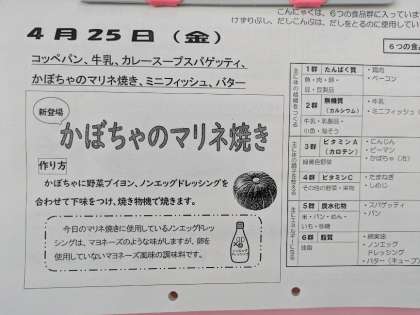 こんにゃくは、6つの食品群に入っていま
けずりぶし、だしこんぶは、だしをとるのに使用してい
4月25日(金)
6つの食品
コッペパン、牛乳、カレースープスパゲッティ、
かぼちゃのマリネ焼き、ミニフィッシュ、バター
新登場
かぼちゃのマリネ焼き
作り方
かぼちゃに野菜ブイヨン、ノンエッグドレッシングを
合わせて下味をつけ、焼き物機で焼きます。
今日のマリネ焼きに使用しているノンエッグドレッ
シングは、マヨネーズのような味がしますが、卵を
使用していないマヨネーズ風味の調味料です。
1群 たんぱく質
魚・肉・卵・
豆・豆製品
・鶏肉
・ベーコン
2群 無機質
(カルシウム)
牛乳・乳製品・
小魚・海そう
・牛乳
・ミニフィッシュ
3群 ビタミンA
(カロテン)
緑黄色野菜
・にんじん
・ピーマン
・かぼちゃ
4群 ビタミンC
その他の野菜・果物
・たまねぎ
・しめじ
5群 炭水化物
米・パン・めん・
いも・砂糖
・スパゲッティ
・パン
6群 脂質
油脂
・綿実油
・ノンエッグ
ドレッシング
・バター(キューブ)